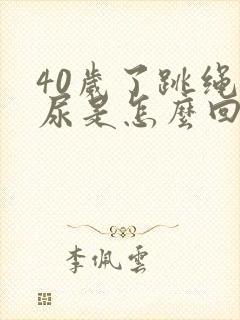 40歲了跳绳
尿是怎麼回
李佩雲